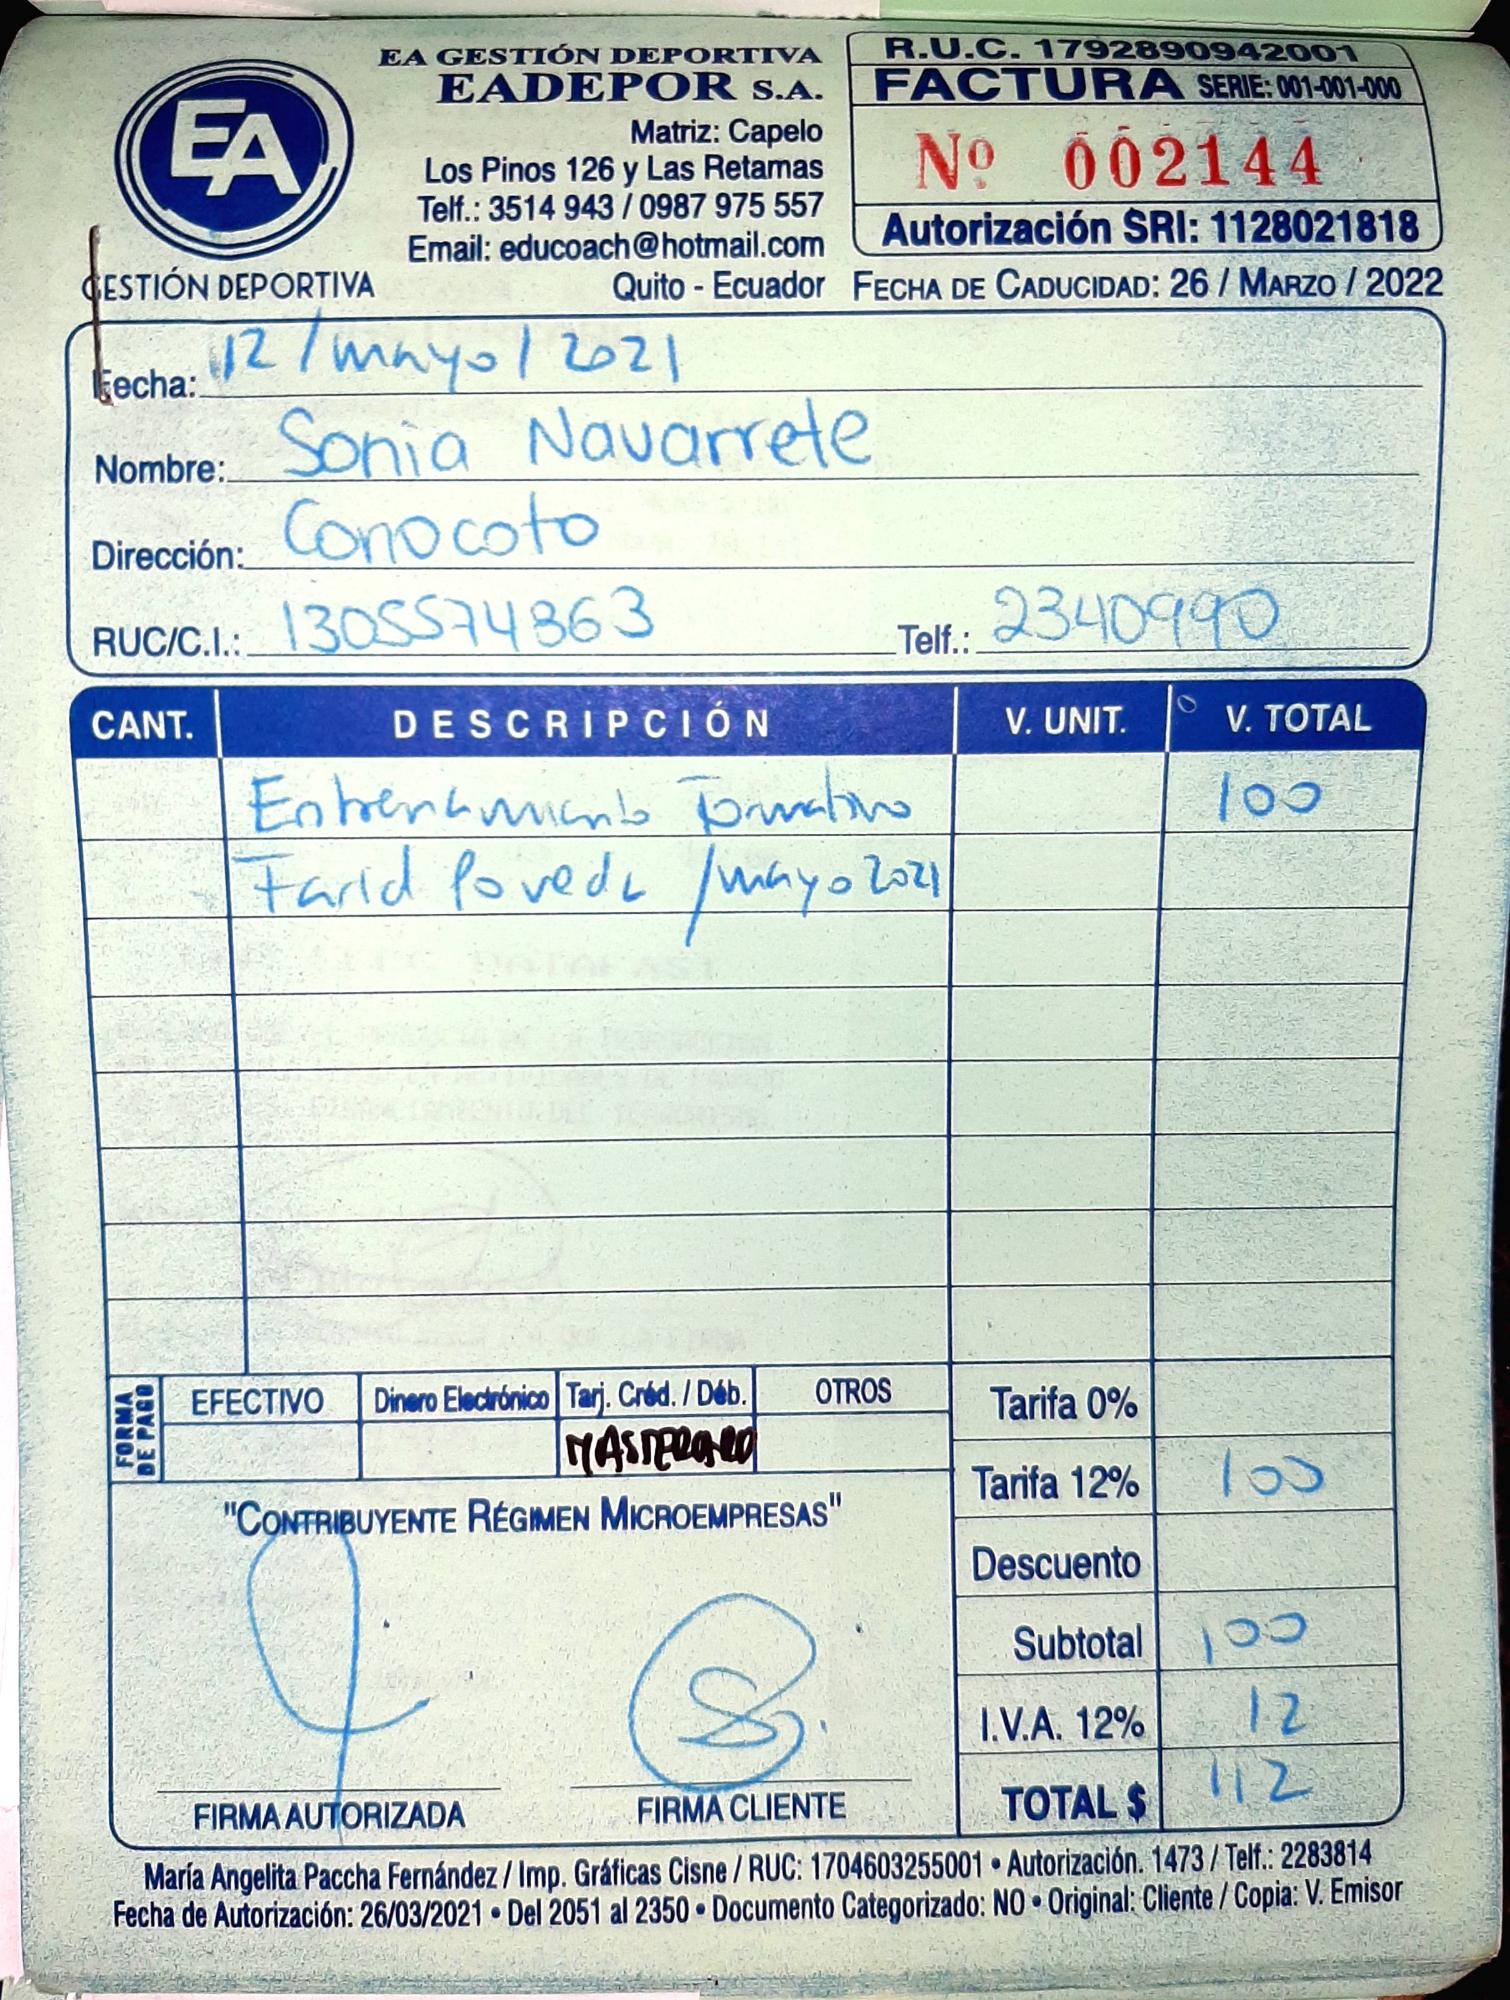 EA
GESTIÓN DEPORTIVA
EA GESTIÓN DEPORTIVA
EADEPOR S.A.
Matriz: Capelo
Los Pinos 126 y Las Retamas
Telf.: 3514 943 / 0987 975 557
Email: educoach@hotmail.com
Quito - Ecuador
R.U.C. 1792890942001
FACTURA SERIE: 001-001-000
Nº 002144
Autorización SRI: 1128021818
FECHA DE CADUCIDAD: 26 / MARZO / 2022
Fecha: 12 / mayo / 2021
Nombre: Sonia Navarrete
Dirección: Conocoto
RUC/C.I.: 1305574863 Telf.: 2340990
CANT. DESCRIPCIÓN V. UNIT. V. TOTAL
Entrenamiento Formativo 100
Farid Poveda / mayo 2021
FORMA DE PAGO EFECTIVO Dinero Electrónico Tarj. Créd. / Déb. OTROS
MASTERCARD
"CONTRIBUYENTE RÉGIMEN MICROEMPRESAS"
Tarifa 0%
Tarifa 12% 100
Descuento
Subtotal 100
I.V.A. 12% 12
TOTAL $ 112
FIRMA AUTORIZADA FIRMA CLIENTE
María Angelita Paccha Fernández / Imp. Gráficas Cisne / RUC: 1704603255001 • Autorización. 1473 / Telf.: 2283814
Fecha de Autorización: 26/03/2021 • Del 2051 al 2350 • Documento Categorizado: NO • Original: Cliente / Copia: V. Emisor